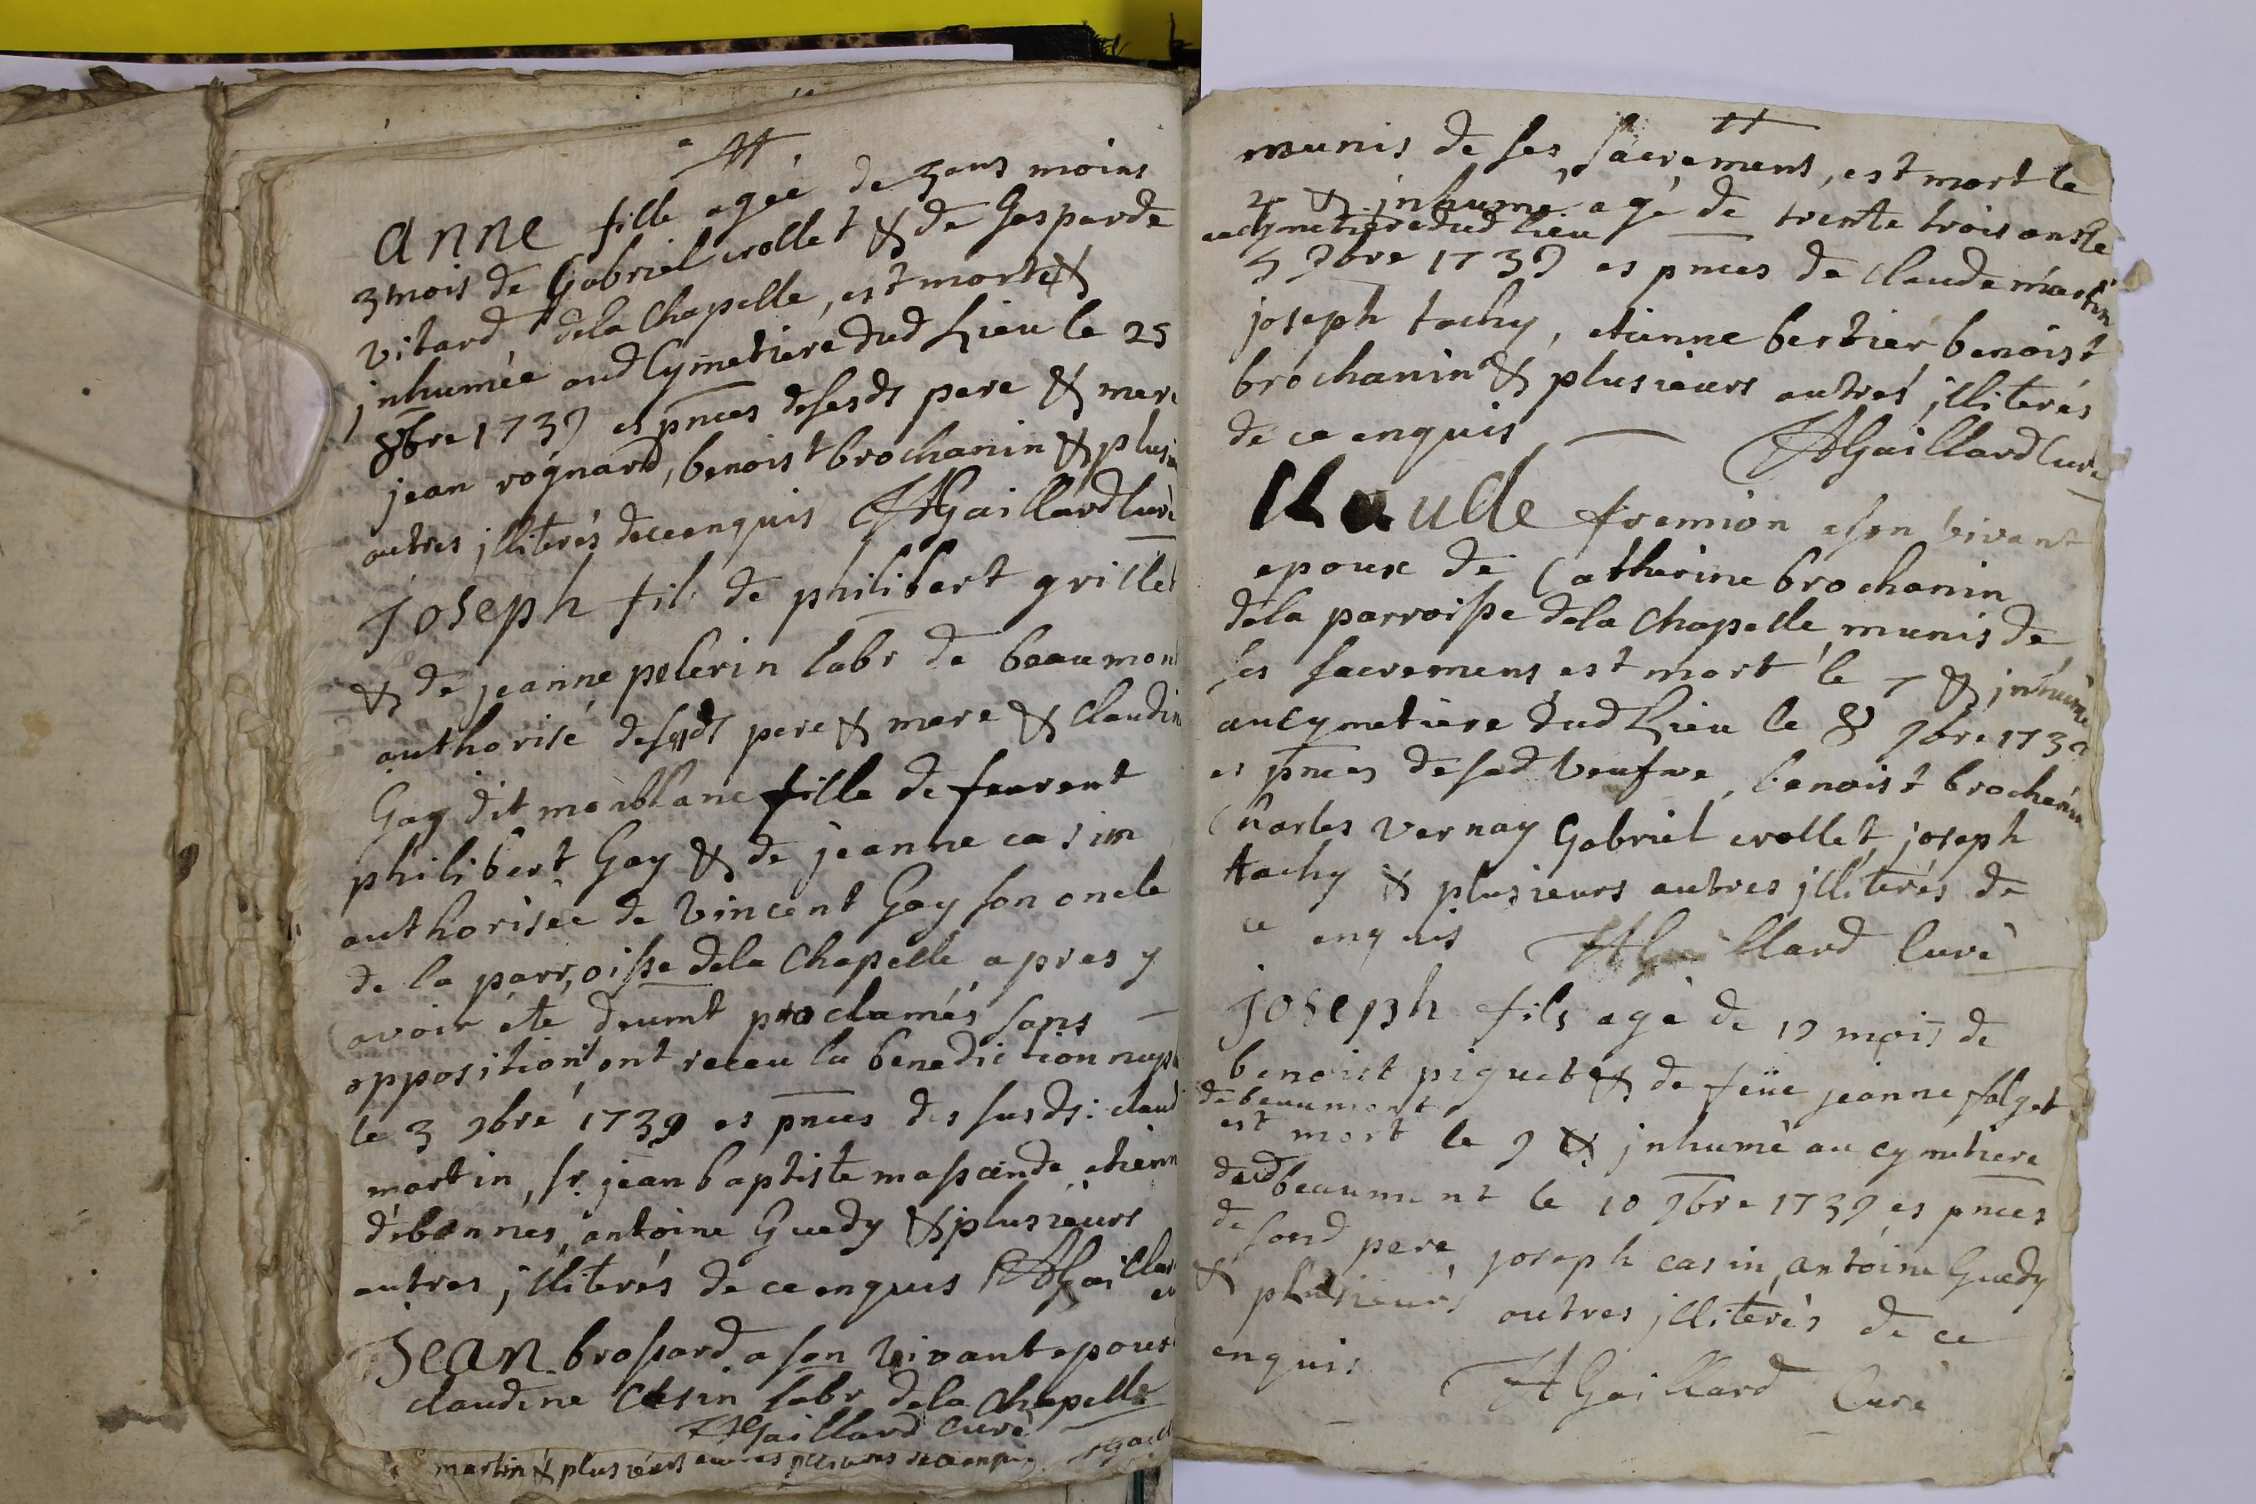 anne fille agée de 3 ans moins
3 mois de Gabriel crollet & de Gasparde
vitard dela chapelle, est morte &
jnhumée aud Cymetiere dud Lieu le 25
8bre 1739 es pnces desesds pere & mere
jean rognard, benoist brochanin & plus
autres jlliterés deceenquis Gaillard Curé
joseph fils de philibert grillet
& de jeanne pelerin labr de beaumont
authorisé desesds pere & mere & claudin
Gay dit monblanc fille de feu
philibert Gay & de jeanne casim
authorisée de vincent Gay son oncle
de la parroisse dela chapelle apres y
avoir été deumt proclamés sans
opposition ont receu la benediction nup
le 3 9bre 1739 es pnces des susds: claud
martin, sr. jean baptiste etienn
debonnes, antoine Guedy & plusieurs
autres jlliterés de ceenquis Gaillard
jean brossard a son vivant epoux
claudine Casin labr dela chapelle
Gaillard Curé
martin & plusieurs autres
munis de ses sacrements, est mort le
4 & jnhumé agé de trente trois ans le
au Cymetiere dud Lieu
5 9bre 1739 es pnces de claude martin
joseph tachy, etienne bertier benoist
brochanin & plusieurs autres jlliterés
de ce enquis Gaillard Curé
Claude fremion a son vivant
epoux de Catherine brochanin
dela parroisse dela chapelle munis de
ses sacremens est mort le 7 & jnhumé
au Cymetiere dud Lieu le 8 9bre 1739
es pnces de sad veufve, benoist brochanin
Charles vernay Gabriel crollet joseph
tachy & plusieurs autres jlliterés de
ce enquis Gaillard Curé
joseph fils agé de 19 mois de
benoist piquet & de feüe jeanne falget
de beaumont
est mort le 9 & jnhumé au cymetiere
dud beaumont le 10 9bre 1739 es pnces
de sond pere, joseph casin, antoine Guedy
& plusieurs autres jlliterés de ce
enquis Gaillard Curé